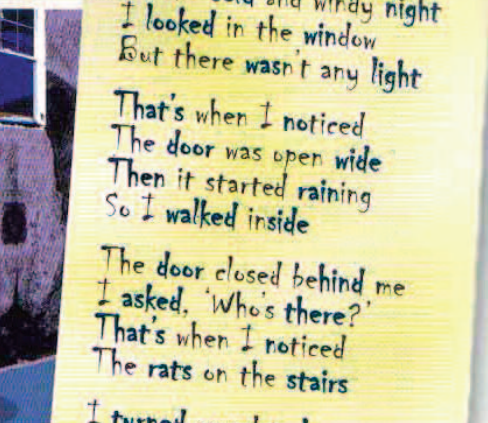 and windy night
I looked in the window
But there wasn't any light
That's when I noticed
The door was open wide
Then it started raining
So I walked inside
The door closed behind me
I asked, 'Who's there?'
That's when I noticed
The rats on the stairs
I turned